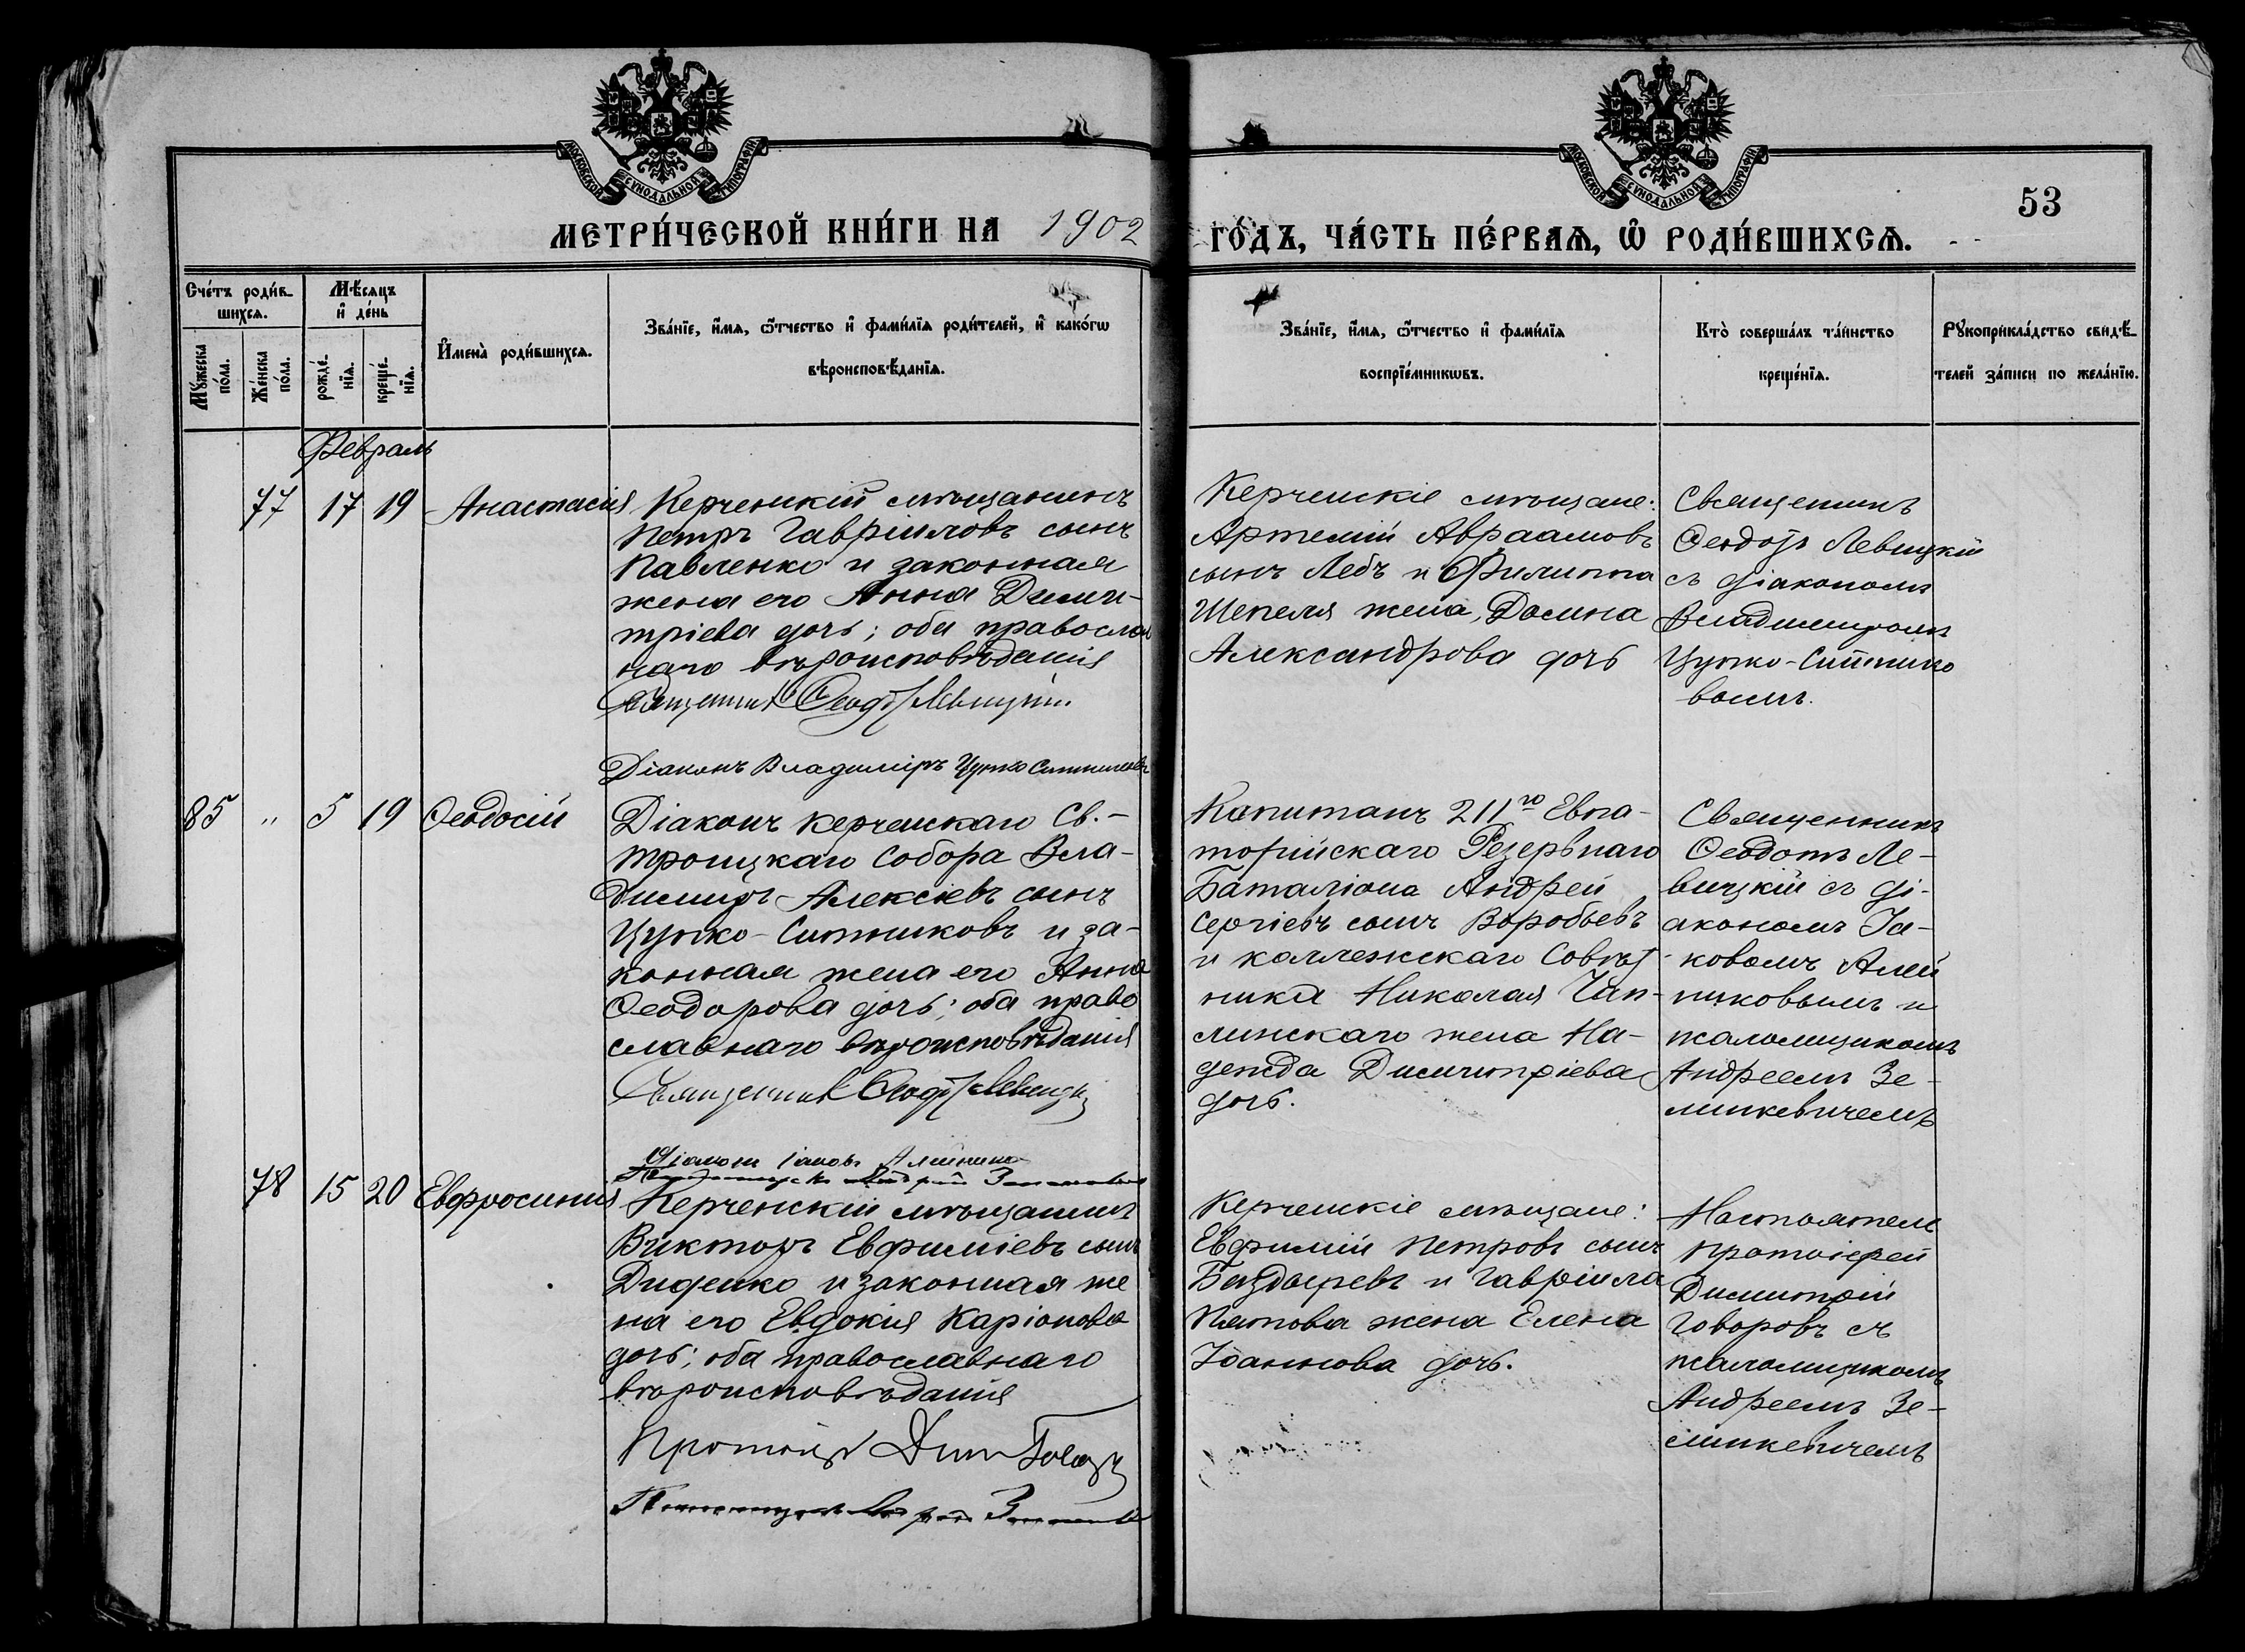 МОСКОВСКОЙ СѴНОДАЛЬНОЙ ТИПОГРАФІИ
МОСКОВСКОЙ СѴНОДАЛЬНОЙ ТИПОГРАФІИ
53
МЕТРИ́ЧЕСКОЙ КНИ́ГИ НА 1902
ГО́ДЪ, ЧА́СТЬ ПЕ́РВАѦ, Ѡ҆ РОДИ́ВШИХСѦ.
Сче́тъ роди́в-
шихсѧ.
Мꙋ́жеска
по́ла.
Же́нска
по́ла.
Мѣ́сяцъ
и҆ де́нь
рожде́-
нїѧ.
креще́-
нїѧ.
И҆мена̀ роди́вшихсѧ.
Зва́нїе, и҆́мѧ, ѻ҆́тчество и҆ фами́лїѧ роди́телей, и҆ како́гѡ
вѣроисповѣ́данїѧ.
Зва́нїе, и҆́мѧ, ѻ҆́тчество и҆ фами́лїѧ
воспрїе́мникѡвъ.
Кто̀ соверша́лъ та́инство
креще́нїѧ.
Рꙋкоприкла́дство свидѣ́-
телей за́писи по жела́нїю.
Февраль
77 17 19 Анастасія
Керченскій мѣщанинъ
Петръ Гавріиловъ сынъ
Павленко и законная
жена его Анна Дими-
тріева дочь; оба православ
наго вѣроисповѣданія
Священникъ Ѳеодотъ Левицкій.
Діаконъ Владиміръ Цупко Ситниковъ
Керченскіе мѣщане:
Артемій Авраамовъ
сынъ Лебъ и Филиппа
Шепеля жена, Домна
Александрова дочь
Священникъ
Ѳеодотъ Левицкій
съ діакономъ
Владиміромъ
Цупко-Ситнико
вымъ.
85 " 5 19 Ѳеодосій
Діаконъ Керченскаго Св.-
Троицкаго Собора Вла-
диміръ Алексіевъ сынъ
Цупко-Ситниковъ и за-
конная жена его Анна
Ѳеодорова дочь; оба право
славнаго вѣроисповѣданія
Священникъ Ѳеодотъ Левицкій
Діаконъ Іаковъ Алейников
Капитанъ 211го Евпа-
торійскаго Резервнаго
Баталіона Андрей
Сергіевъ сынъ Воробьевъ
и коллежскаго Совѣт-
ника Николая Чап-
линскаго жена На-
дежда Димитріева
дочь.
Священникъ
Ѳеодотъ Ле-
вицкій съ ді-
акономъ Іа-
ковомъ Алей
никовымъ и
псаломщикомъ
Андреемъ Зе-
линкевичемъ
78 15 20 Евфросинія
Керченскій мѣщанинъ
Викторъ Евфиміевъ сынъ
Диденко и законная же
на его Евдокія Каріонова
дочь; оба православнаго
вѣроисповѣданія
Протоіер Дим Говоръ
Керченскіе мѣщане:
Евфимій Петровъ сынъ
Баздыревъ и Гавріила
Пятова жена Елена
Іоаннова дочь.
Настоятель
Протоіерей
Димитрій
Говоровъ съ
псаломщикомъ
Андреемъ Зе-
линкевичемъ